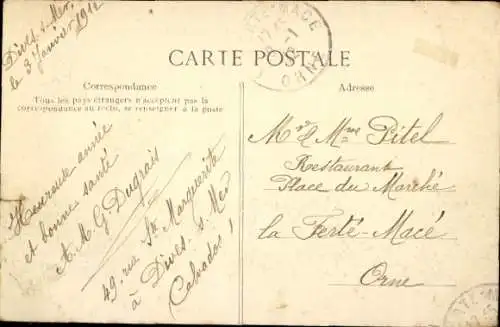 Dives s. Mer,
le 3 Janvier 1912
CARTE POSTALE
Correspondance
Tous les pays étrangers n'acceptent pas la
correspondance au recto, se renseigner à la poste
Heureuse année
et bonne santé
A. M. G Dugrais
49, rue Ste Marguerite
à Dives. s. Mer
Calvados!
Adresse
Mr & Mme Pitel
Restaurant
Place du Marché
la Ferté-Macé
Orne
MACÉ
ORNE